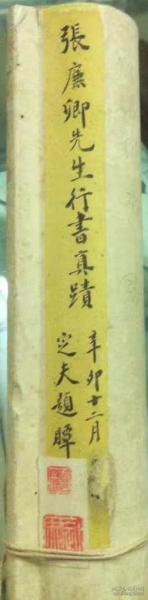 張廉卿先生行書真蹟
辛卯十二月
定夫題